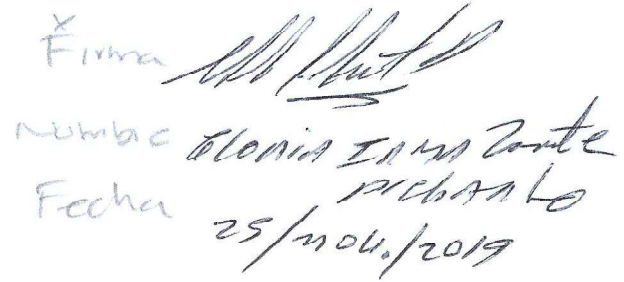 x
Firma
Nombre GLORIA IRMA Zarate
PICHARDO
Fecha 25/NOV./2019